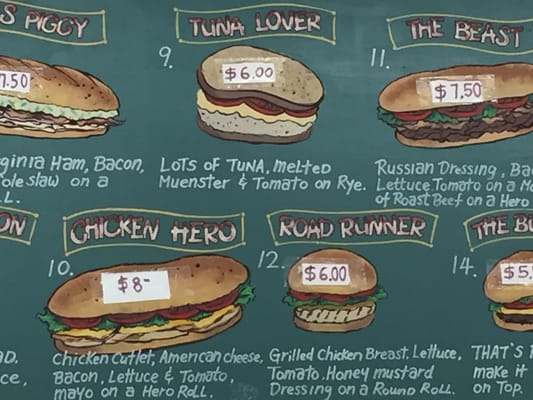 S PIGGY
7.50
rginia Ham, Bacon,
oleslaw on a
LL.
TUNA LOVER
9.
$6.00
LOTS OF TUNA, melted
Muenster & Tomato on Rye.
THE BEAST
11.
$7.50
Russian Dressing, Bac
Lettuce Tomato on a Mo
of Roast Beef on a Hero
ON
AD.
ce,
CHICKEN HERO
10.
$8-
Chicken Cutlet, American cheese,
Bacon, Lettuce & Tomato,
mayo on a Hero Roll.
ROAD RUNNER
12.
$6.00
Grilled Chicken Breast, Lettuce,
Tomato. Honey mustard
Dressing on a Round Roll.
THE BU
14.
$5.
THAT'S
make it
on Top.